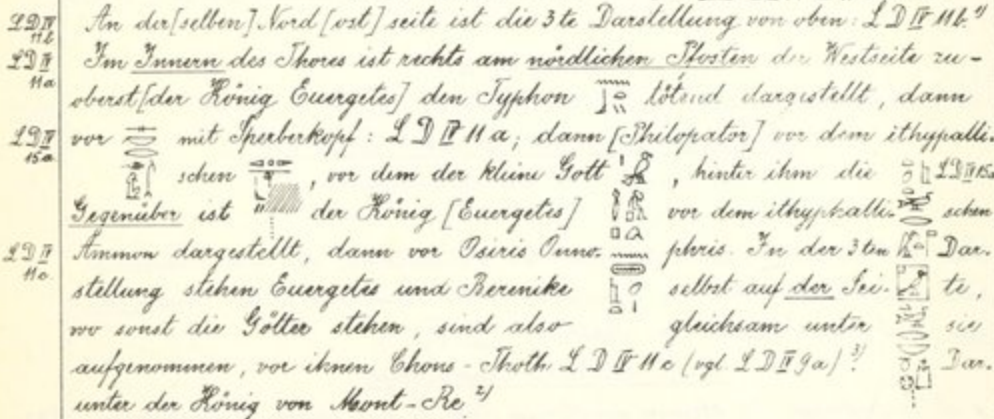 L D IV 11b. An der[selben] Nord[ost]seite ist die 3te Darstellung von oben: L D IV 11b. 1)
L D IV 11a Im Innern des Thores ist rechts am nördlichen Pfosten der Westseite zu-
oberst [der König Euergetes] den Typhon tötend dargestellt, dann
L D IV 15a vor mit Sperberkopf: L D IV 11a; dann [Philopator] vor dem ithyphalli-
schen , vor dem der kleine Gott , hinter ihm die L D IV 15a
Gegenüber ist der König [Euergetes] vor dem ithyphalli- schen
L D IV 11c. Ammon dargestellt, dann vor Osiris Onno- phris. In der 3ten Dar-
stellung stehen Euergetes und Berenike selbst auf der Sei- te,
wo sonst die Götter stehen, sind also gleichsam unter sie
aufgenommen, vor ihnen Chons-Thoth L D IV 11c (vgl. L D IV 9a) 3) Dar-
unter der König von Mont-Re 2)